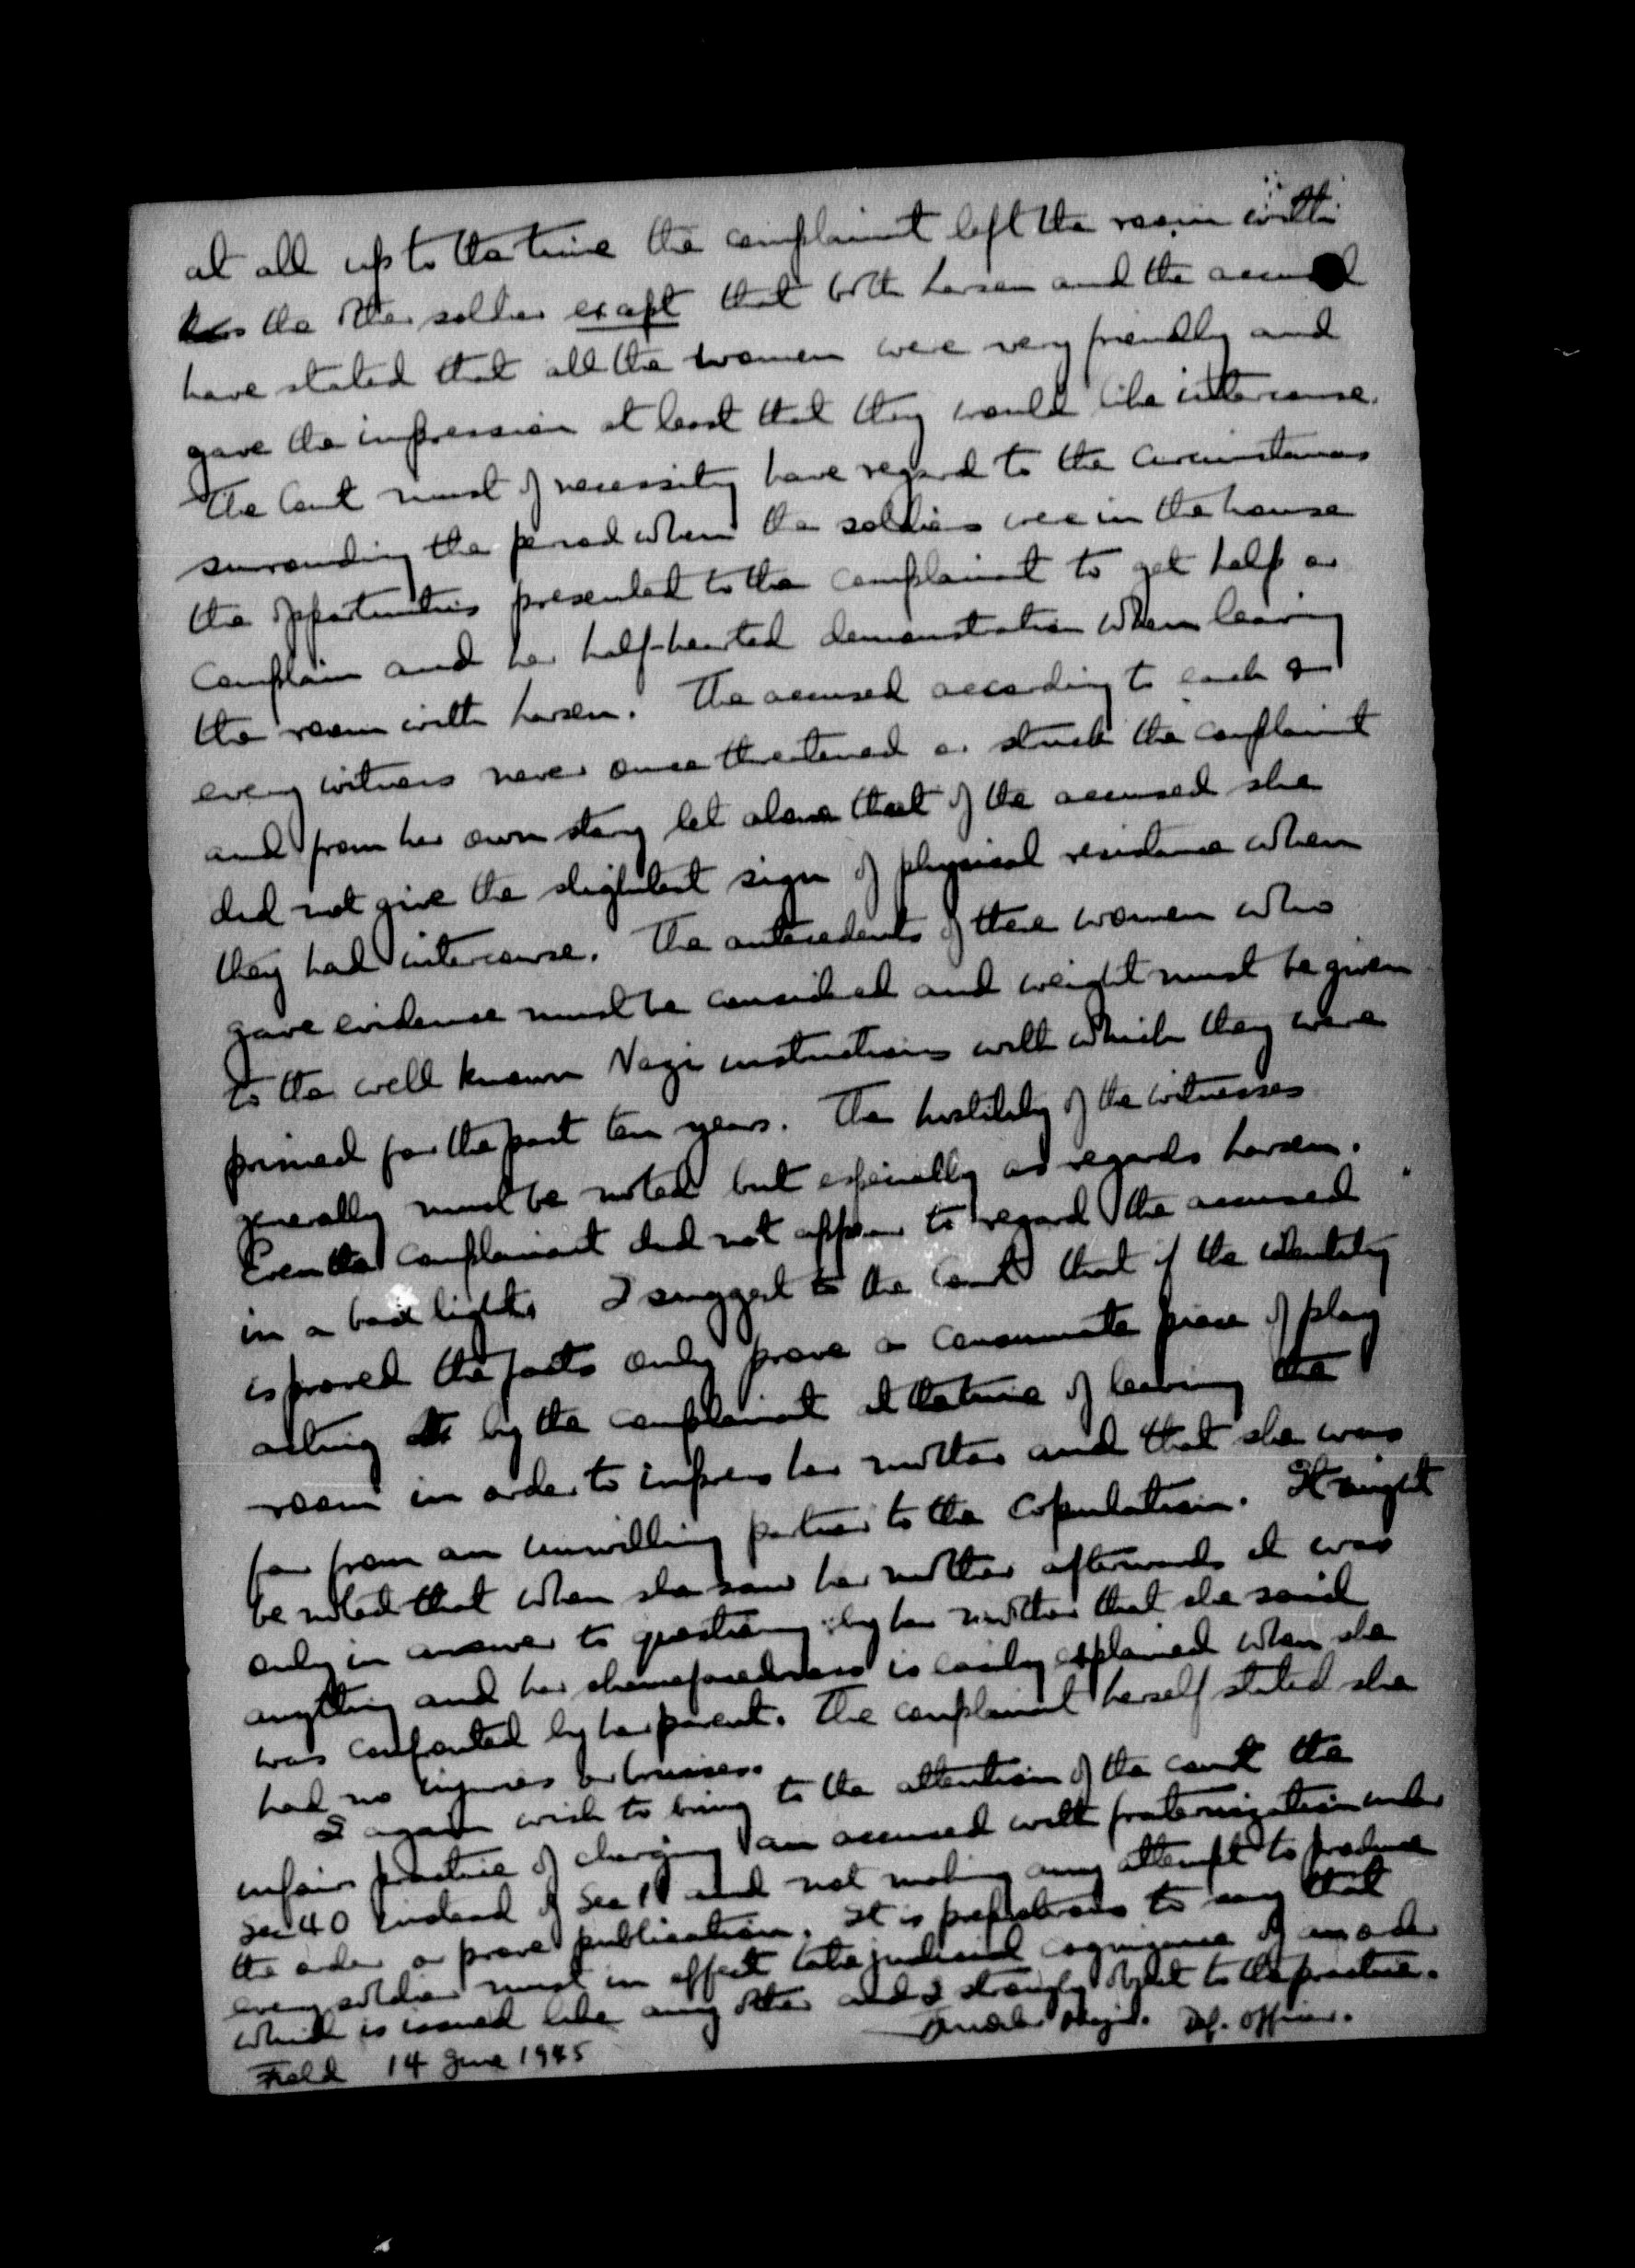 at all up to the time the complainant left the room with
the other soldier except that both Larsen and the accused
have stated that all the women were very friendly and
gave the impression at least that they would like intercourse.
The Court must of necessity have regard to the circumstances
surrounding the period when the soldiers were in the house
the opportunities presented to the complainant to get help or
complain and her half-hearted demonstration when leaving
the room with Larsen. The accused according to each &
every witness never once threatened or struck the complainant
and from her own story let alone that of the accused she
did not give the slightest sign of physical resistance when
they had intercourse. The antecedents of these women who
gave evidence must be considered and weight must be given
to the well known Nazi instructions with which they were
primed for the past ten years. The hostility of the witnesses
generally must be noted but especially as regards Larsen.
Even the complainant did not appear to regard the accused
in a bad light. I suggest to the Court that if the identity
is proved the facts only prove a consummate piece of play
acting by the complainant at the time of leaving the
room in order to impress her mother and that she was
far from an unwilling partner to the copulation. It might
be noted that when she saw her mother afterwards it was
only in answer to questioning by her mother that she said
anything and her shamefacedness is easily explained when she
was confronted by her parent. The complainant herself stated she
had no injuries or bruises.
I again wish to bring to the attention of the court the
unfair practice of charging an accused with fraternization under
Sec 40 instead of Sec 11 and not making any attempt to produce
the order or prove publication. It is preposterous to say that
every soldier must in effect take judicial cognizance of an order
which is issued like any other and I strongly object to the practice.
Major. Def. Officer.
Field 14 June 1945